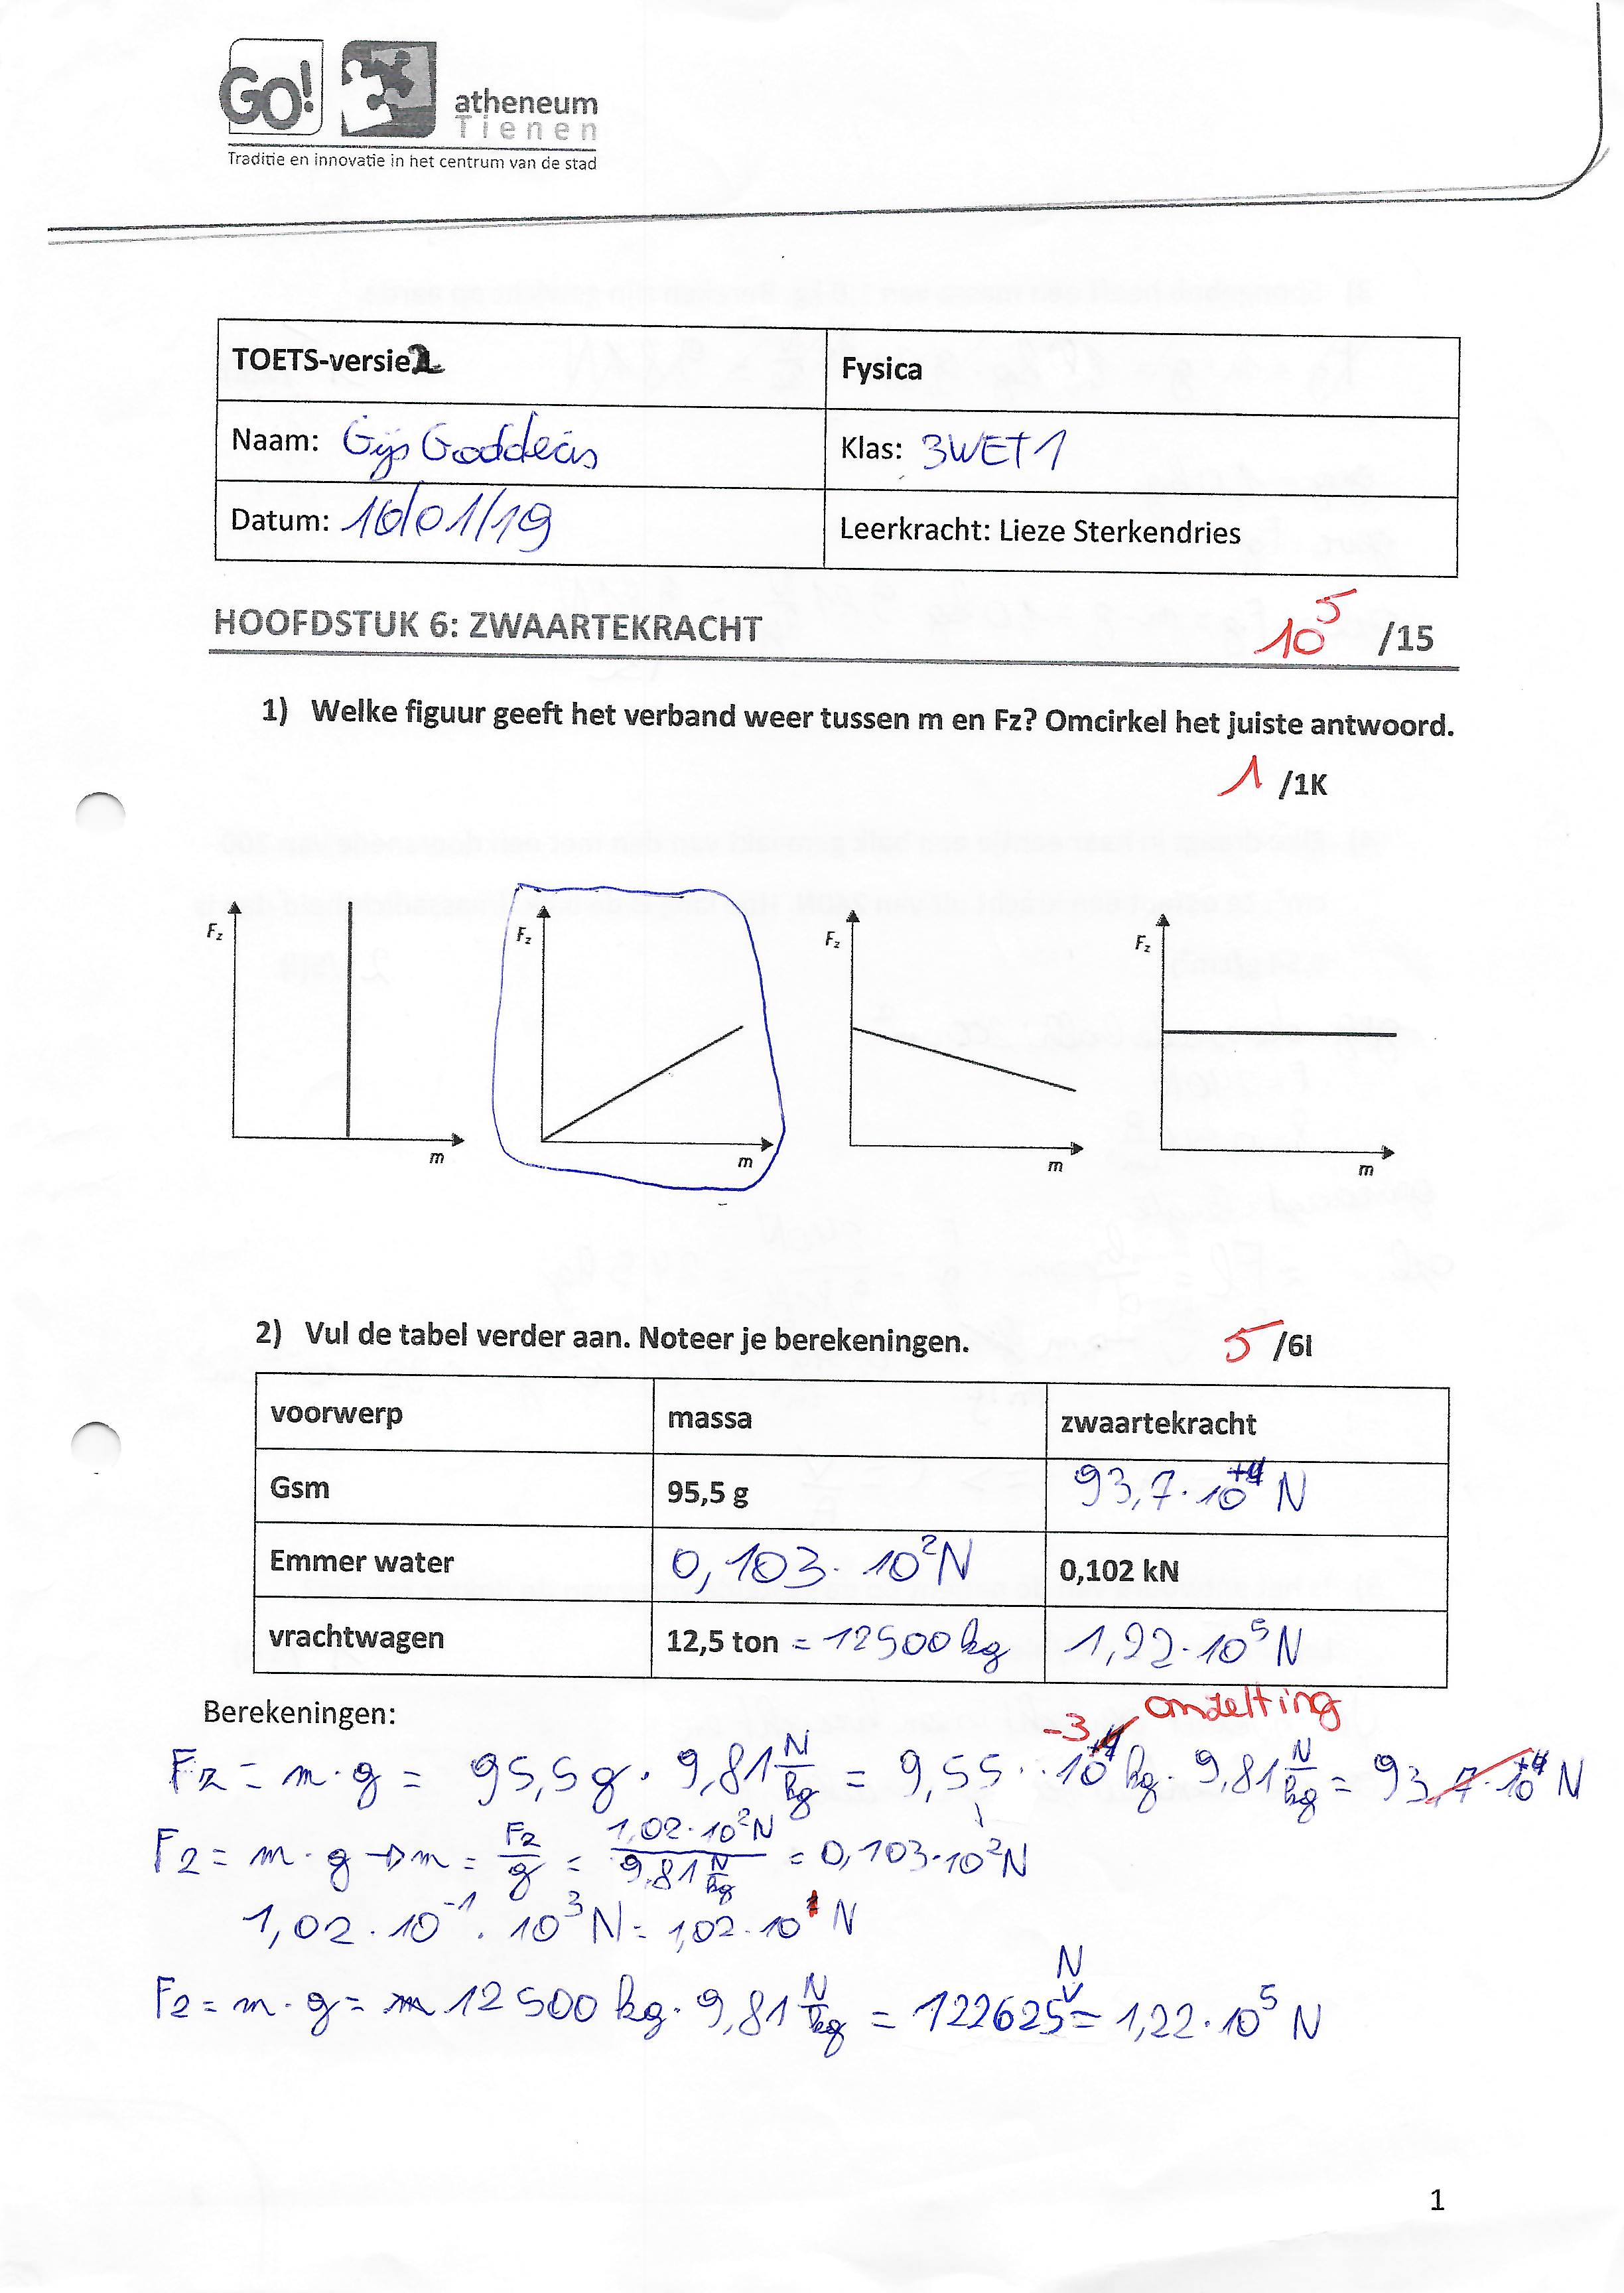 GO! atheneum
Tienen
Traditie en innovatie in het centrum van de stad
TOETS-versie 2
Fysica
Naam: Gijs Goddeeris
Klas: 3WET1
Datum: 16/01/19
Leerkracht: Lieze Sterkendries
HOOFDSTUK 6: ZWAARTEKRACHT 10 5 /15
1) Welke figuur geeft het verband weer tussen m en Fz? Omcirkel het juiste antwoord.
1 /1K
Fz m
Fz m
Fz m
Fz m
2) Vul de tabel verder aan. Noteer je berekeningen. 5 /6I
voorwerp massa zwaartekracht
Gsm 95,5 g 93,7 · 10⁺⁴ N
Emmer water 0,103 · 10² N 0,102 kN
vrachtwagen 12,5 ton = 12500 kg 1,22 · 10⁵ N
Berekeningen:
-3 omzetting
Fz = m · g = 95,5g · 9,81 N/kg = 9,55 · 10⁺⁴ kg · 9,81 N/kg = 93,7 · 10⁺⁴ N
Fz = m · g → m = Fz/g = 1,02 · 10² N / 9,81 N/kg = 0,103 · 10² N
1,02 · 10⁻¹ · 10³ N = 1,02 · 10 N
Fz = m · g = 12 500 kg · 9,81 N/kg = 122625 N = 1,22 · 10⁵ N
1